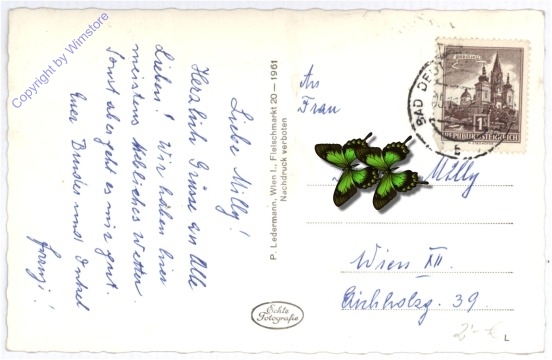 Copyright by Wimstore
Liebe Milly!
Herzlich Grüsse an Alle
Lieben! Wir haben hier
meistens Herrliches Wetter.
Sonst aber geht es mir ganz.
Euer Bruder und Onkel
Franzi!
P. Ledermann, Wien I., Fleischmarkt 20 — 1961
Nachdruck verboten
Echte
Fotografie
An
Frau
Milly
Wien XII.
Eichholzg. 39.
BAD DEUT
1
REPUBLIK ÖSTERREICH
2'- €
L